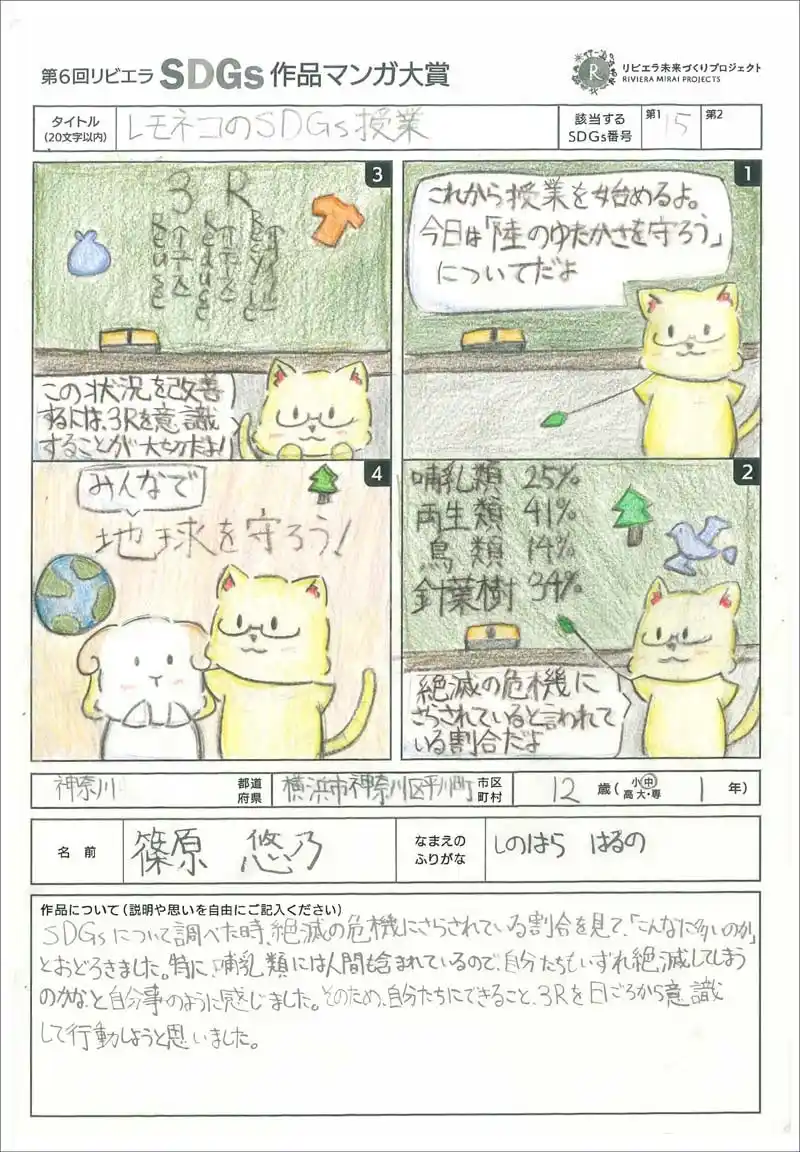 第6回リビエラ SDGs 作品マンガ大賞
リビエラ未来づくりプロジェクト
RIVIERA MIRAI PROJECTS
タイトル
(20文字以内)
レモネコのSDGs授業
該当する
SDGs番号
第1
15
第2
1
これから授業を始めるよ。
今日は「陸のゆたかさを守ろう」
についてだよ
2
哺乳類 25%
両生類 41%
鳥類 14%
針葉樹 34%
絶滅の危機に
さらされていると言われて
いる割合だよ
3
3R
Recycle
リサイクル
Reduse
リデュース
Reuse
リユース
この状況を改善
するには、3Rを意識
することが大切だよ!
4
みんなで
地球を守ろう!
神奈川 都道府県 横浜市神奈川区平川町 市区町村 12 歳(小・中・高・大・専 1 年)
名前
篠原 悠乃
なまえの
ふりがな
しのはら はるの
作品について(説明や思いを自由にご記入ください)
SDGsについて調べた時、絶滅の危機にさらされている割合を見て、「こんなに多いのか」
とおどろきました。特に、哺乳類には人間も含まれているので、自分たちもいずれ絶滅してしまう
のかな、と自分事のように感じました。そのため、自分たちにできること、3Rを日ごろから意識
して行動しようと思いました。